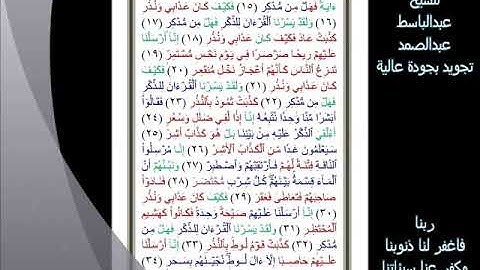 ءَايَةً فَهَلْ مِن مُّدَّكِرٍ (١٥) فَكَيْفَ كَانَ عَذَابِى وَنُذُرِ
(١٦) وَلَقَدْ يَسَّرْنَا الْقُرْءَانَ لِلذِّكْرِ فَهَلْ مِن مُّدَّكِرٍ (١٧)
كَذَّبَتْ عَادٌ فَكَيْفَ كَانَ عَذَابِى وَنُذُرِ (١٨) إِنَّا أَرْسَلْنَا
عَلَيْهِمْ رِيحًا صَرْصَرًا فِى يَوْمِ نَحْسٍ مُّسْتَمِرٍّ (١٩)
تَنزِعُ النَّاسَ كَأَنَّهُمْ أَعْجَازُ نَخْلٍ مُّنقَعِرٍ (٢٠) فَكَيْفَ
كَانَ عَذَابِى وَنُذُرِ (٢١) وَلَقَدْ يَسَّرْنَا الْقُرْءَانَ لِلذِّكْرِ
فَهَلْ مِن مُّدَّكِرٍ (٢٢) كَذَّبَتْ ثَمُودُ بِالنُّذُرِ (٢٣) فَقَالُوا
أَبَشَرًا مِّنَّا وَٰحِدًا نَّتَّبِعُهُ إِنَّا إِذًا لَّفِى ضَلَٰلٍ وَسُعُرٍ (٢٤)
أَءُلْقِىَ الذِّكْرُ عَلَيْهِ مِن بَيْنِنَا بَلْ هُوَ كَذَّابٌ أَشِرٌ (٢٥)
سَيَعْلَمُونَ غَدًا مَّنِ الْكَذَّابُ الْأَشِرُ (٢٦) إِنَّا مُرْسِلُوا
النَّاقَةِ فِتْنَةً لَّهُمْ فَارْتَقِبْهُمْ وَاصْطَبِرْ (٢٧) وَنَبِّئْهُمْ أَنَّ
الْمَاءَ قِسْمَةٌ بَيْنَهُمْ كُلُّ شِرْبٍ مُّحْتَضَرٌ (٢٨) فَنَادَوْا
صَاحِبَهُمْ فَتَعَاطَىٰ فَعَقَرَ (٢٩) فَكَيْفَ كَانَ عَذَابِى وَنُذُرِ
(٣٠) إِنَّا أَرْسَلْنَا عَلَيْهِمْ صَيْحَةً وَٰحِدَةً فَكَانُوا كَهَشِيمِ
الْمُحْتَظِرِ (٣١) وَلَقَدْ يَسَّرْنَا الْقُرْءَانَ لِلذِّكْرِ فَهَلْ مِن
مُّدَّكِرٍ (٣٢) كَذَّبَتْ قَوْمُ لُوطٍ بِالنُّذُرِ (٣٣) إِنَّا أَرْسَلْنَا
عَلَيْهِمْ حَاصِبًا إِلَّا ءَالَ لُوطٍ نَّجَّيْنَٰهُم بِسَحَرٍ (٣٤)
للشيخ
عبدالباسط
عبدالصمد
تجويد بجودة عالية
ربنا
فاغفر لنا ذنوبنا
وكفر عنا سيئاتنا